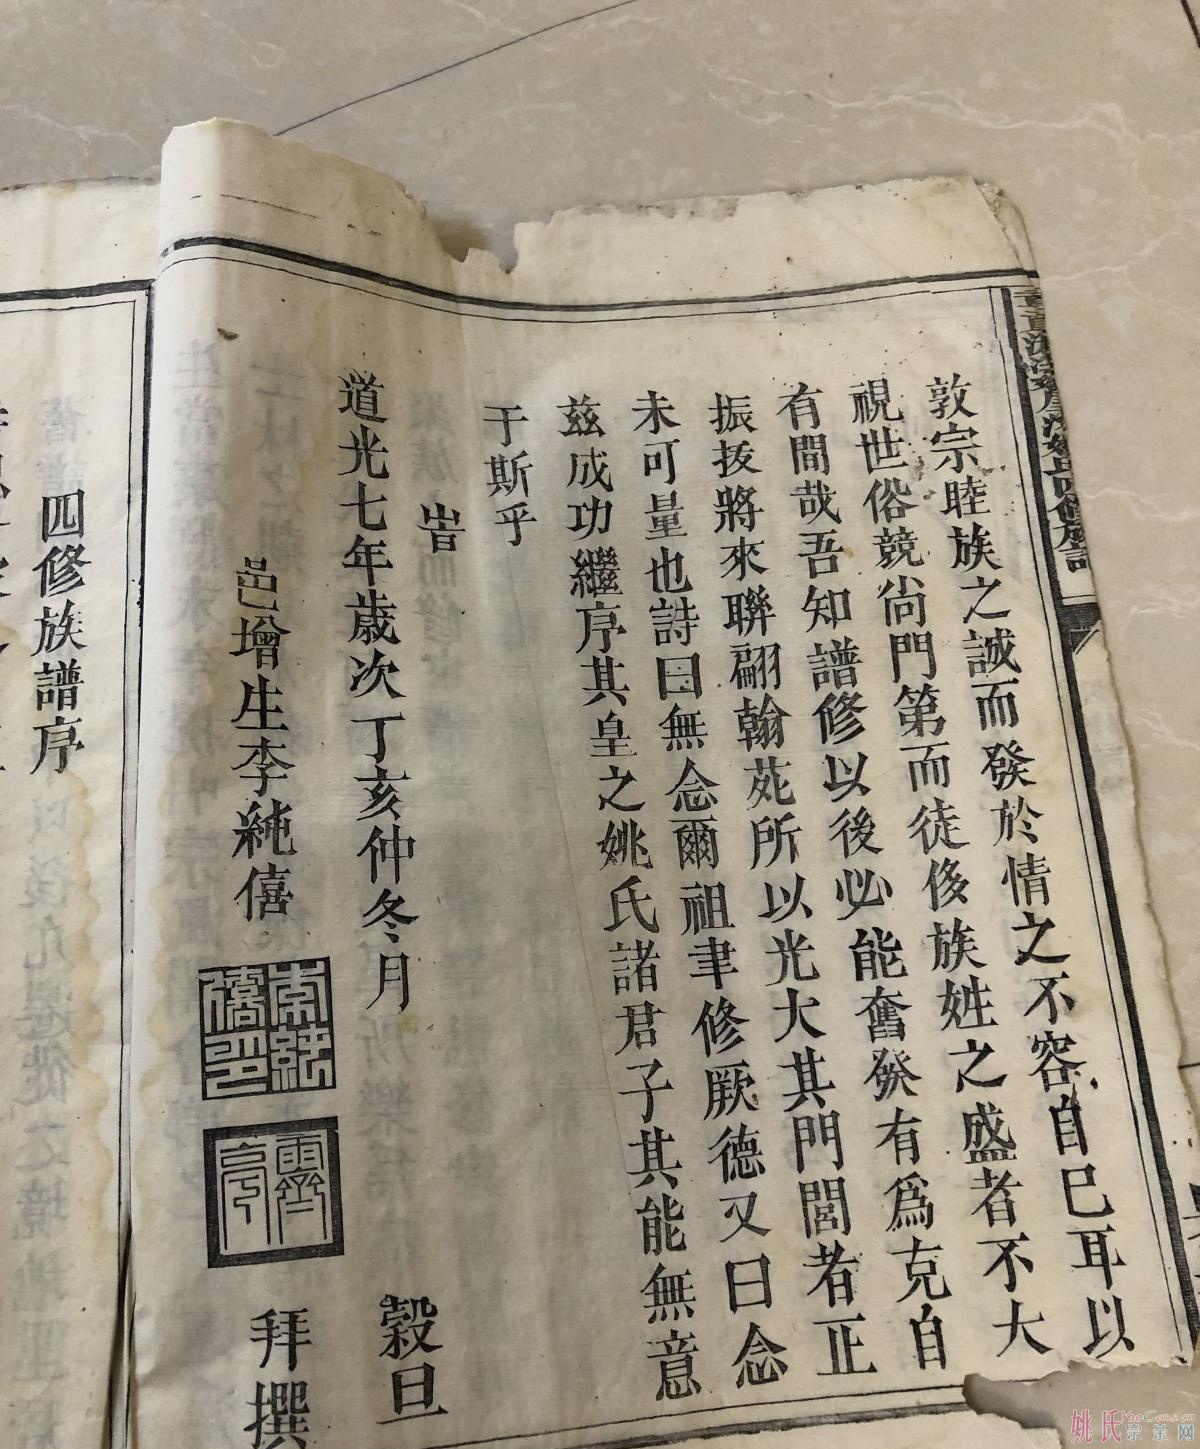 敦宗睦族之誠而發於情之不容自已耳以
視世俗競尙門第而徒侈族姓之盛者不大
有間哉吾知譜修以後必能奮發有爲克自
振拔將來聯翩翰苑所以光大其門閭者正
未可量也詩曰無念爾祖聿修厥德又曰念
茲成功繼序其皇之姚氏諸君子其能無意
于斯乎
旹
道光七年歲次丁亥仲冬月 穀旦
邑增生李純僖 拜撰
四修族譜序
姚氏宗菜网
YaoGens.cn